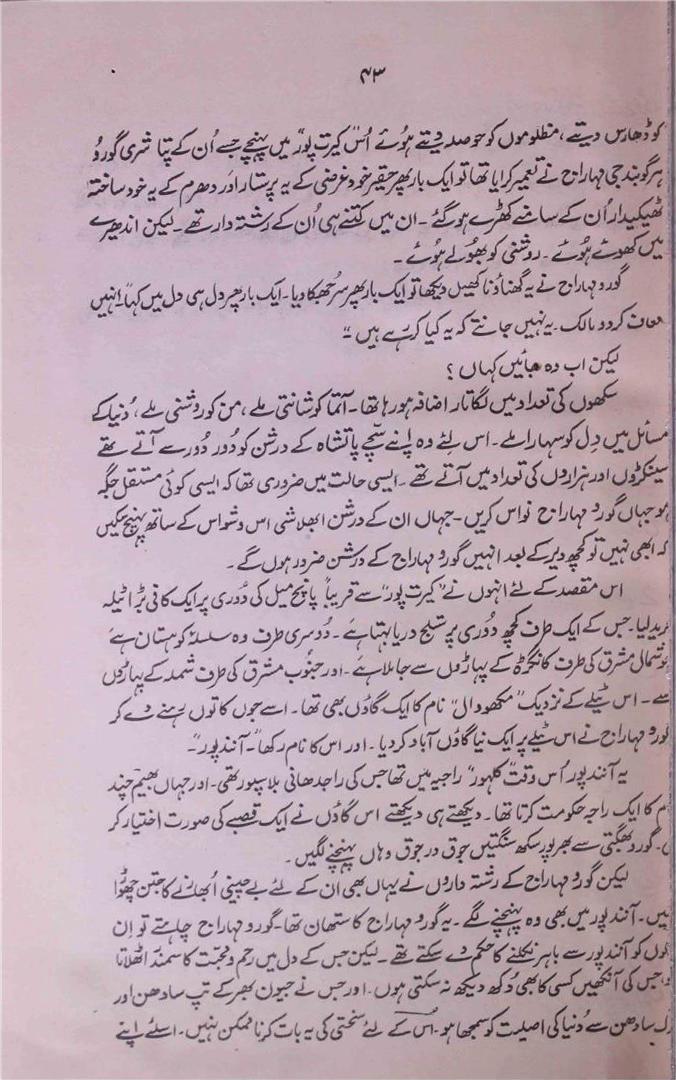 ۴۳
کو ڈھارس دیتے، مظلوموں کو حوصلہ دیتے ہوئے اُس کیرت پور میں پہنچے جسے اُن کے پتا شری گورو
ہرگوبند جی مہاراج نے تعمیر کرایا تھا تو ایک بار پھر حقیر خود غرضی کے یہ پرستار اور دھرم کے یہ خود ساختہ
ٹھیکیدار اُن کے سامنے کھڑے ہو گئے۔ ان میں کتنے ہی اُن کے رشتہ دار تھے۔ لیکن اندھیرے
میں کھوئے ہوئے۔ روشنی کو بھولے ہوئے۔
گورو مہاراج نے یہ گھناؤنا کھیل دیکھا تو ایک بار پھر سر جھکا دیا۔ ایک بار پھر دل ہی دل میں کہا "انہیں
معاف کر دو مالک۔ یہ نہیں جانتے کہ یہ کیا کر رہے ہیں"
لیکن اب وہ جائیں کہاں؟
سکھوں کی تعداد میں لگاتار اضافہ ہو رہا تھا۔ آتما کو شانتی ملے، من کو روشنی ملے، دُنیا کے
مسائل میں دِل کو سہارا ملے۔ اس لئے وہ اپنے سچے پاتشاہ کے درشن کو دُور دُور سے آتے تھے
سینکڑوں اور ہزاروں کی تعداد میں آتے تھے۔ ایسی حالت میں ضروری تھا کہ ایسی کوئی مستقل جگہ
ہو جہاں گورو مہاراج نواس کریں۔ جہاں ان کے درشن ابھلاشی اس وشواس کے ساتھ پہنچ سکیں
کہ ابھی نہیں تو کچھ دیر کے بعد انہیں گورو مہاراج کے درشن ضرور ہوں گے۔
اس مقصد کے لئے انہوں نے "کیرت پور" سے قریباً پانچ میل کی دُوری پر ایک کافی بڑا ٹیلہ
خرید لیا۔ جس کے ایک طرف کچھ دُوری پر ستلج دریا بہتا ہے۔ دُوسری طرف وہ سلسلۂ کوہستان ہے
جو شمال مشرق کی طرف کانگڑہ کے پہاڑوں سے جا ملا ہے۔ اور جنوب مشرق کی طرف شملہ کے پہاڑوں
سے۔ اس ٹیلے کے نزدیک "مکھووال" نام کا ایک گاؤں بھی تھا۔ اسے جوں کا توں رہنے دے کر
گورو مہاراج نے اس ٹیلے پر ایک نیا گاؤں آباد کر دیا۔ اور اس کا نام رکھا "آنند پور"۔
یہ آنند پور اُس وقت "کلہور" راجیہ میں تھا جس کی راجدھانی بلاسپور تھی۔ اور جہاں بھیم چند
نام کا ایک راجہ حکومت کرتا تھا۔ دیکھتے ہی دیکھتے اس گاؤں نے ایک قصبے کی صورت اختیار کر
لی۔ گورو بھگتی سے بھرپور سکھ سنگتیں جوق در جوق وہاں پہنچنے لگیں۔
لیکن گورو مہاراج کے رشتہ داروں نے یہاں بھی ان کے لئے بے چینی اُبھارنے کا جتن چھوڑا
نہیں۔ آنند پور میں بھی وہ پہنچنے لگے۔ یہ گورو مہاراج کا ستھان تھا۔ گورو مہاراج چاہتے تو اِن
لوگوں کو آنند پور سے باہر نکلنے کا حکم دے سکتے تھے۔ لیکن جس کے دل میں رحم و محبت کا سمندر اٹھلاتا
ہو، جس کی آنکھیں کسی کا بھی دُکھ دیکھ نہ سکتی ہوں۔ اور جس نے جیون بھر کے تپ سادھن اور
سادھن سے دُنیا کی اصلیت کو سمجھا ہو۔ اُس کے لئے سختی کی یہ بات کرنا ممکن نہیں۔ اسلئے اپنے